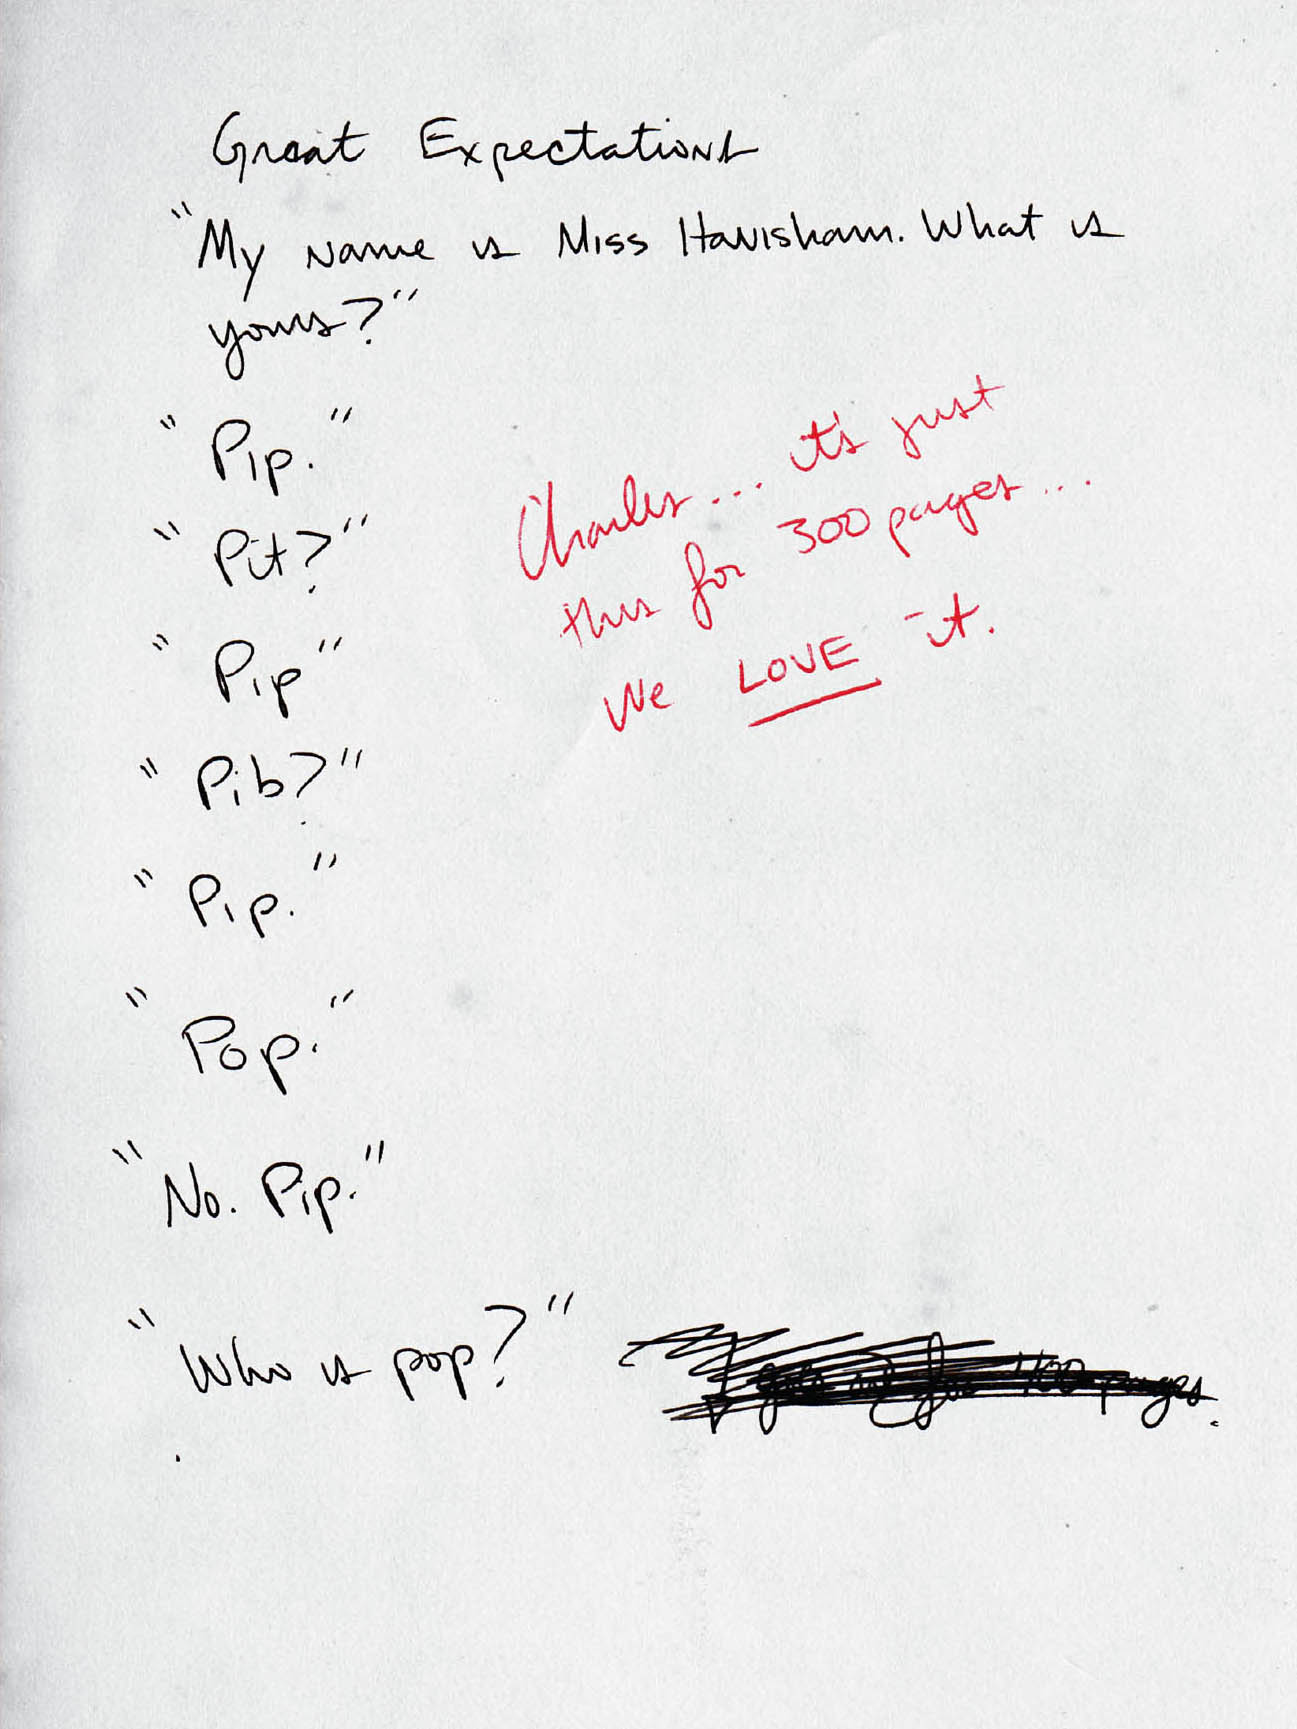 Great Expectations
"My name is Miss Havisham. What is
yours?"
"Pip."
"Pit?"
"Pip"
"Pib?"
"Pip."
"Pop."
"No. Pip."
"Who is pop?"
400 pages.
Charles... it's just
this for 300 pages...
We LOVE it.